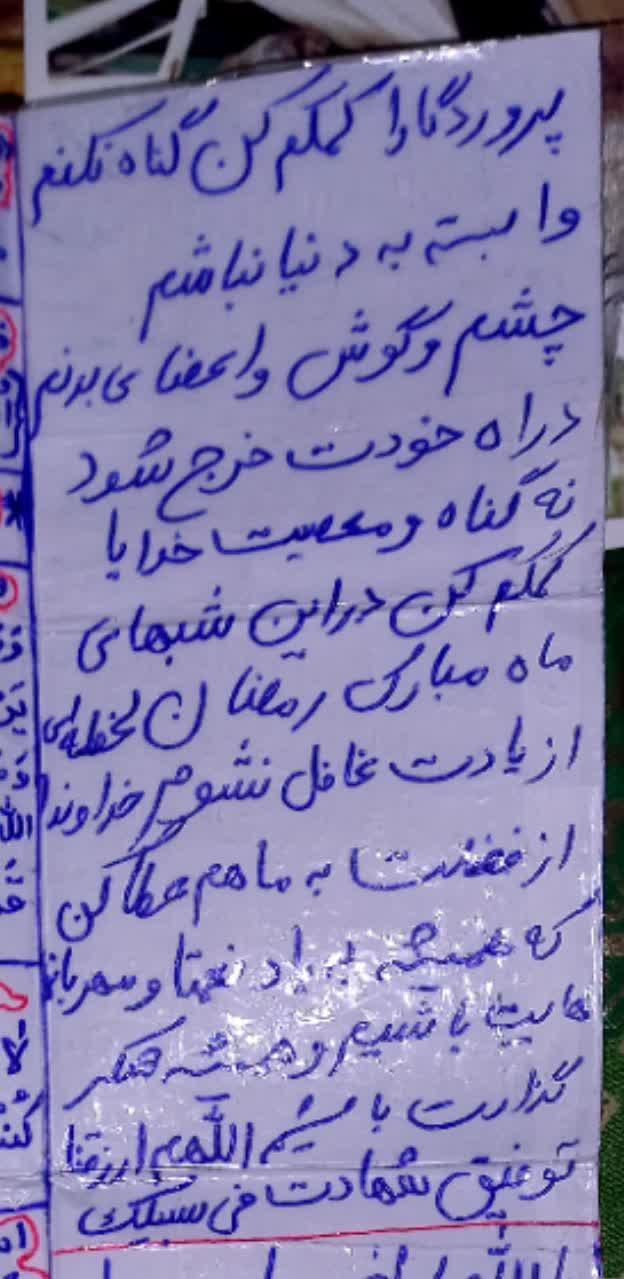 پروردگارا کمکم کن گناه نکنم
وابسته به دنیا نباشم
چشم و گوش و اعضای بدنم
در راه خودت خرج شود
نه گناه و معصیت خدایا
کمکم کن در این شبهای
ماه مبارک رمضان لحظه‌ای
از یادت غافل نشوم خداوندا
از فضلت به ما هم عطا کن
که همیشه به یاد نعمتا و مهربانی
هایت باشیم و همیشه شکر
گذارت باشیم اللهم ارزقنا
توفیق شهادت فی سبیلک